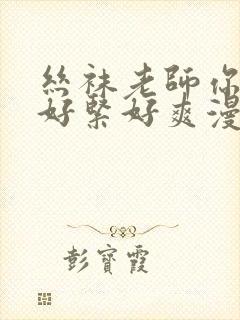 絲袜老師你
好緊好爽漫
彭寶霞